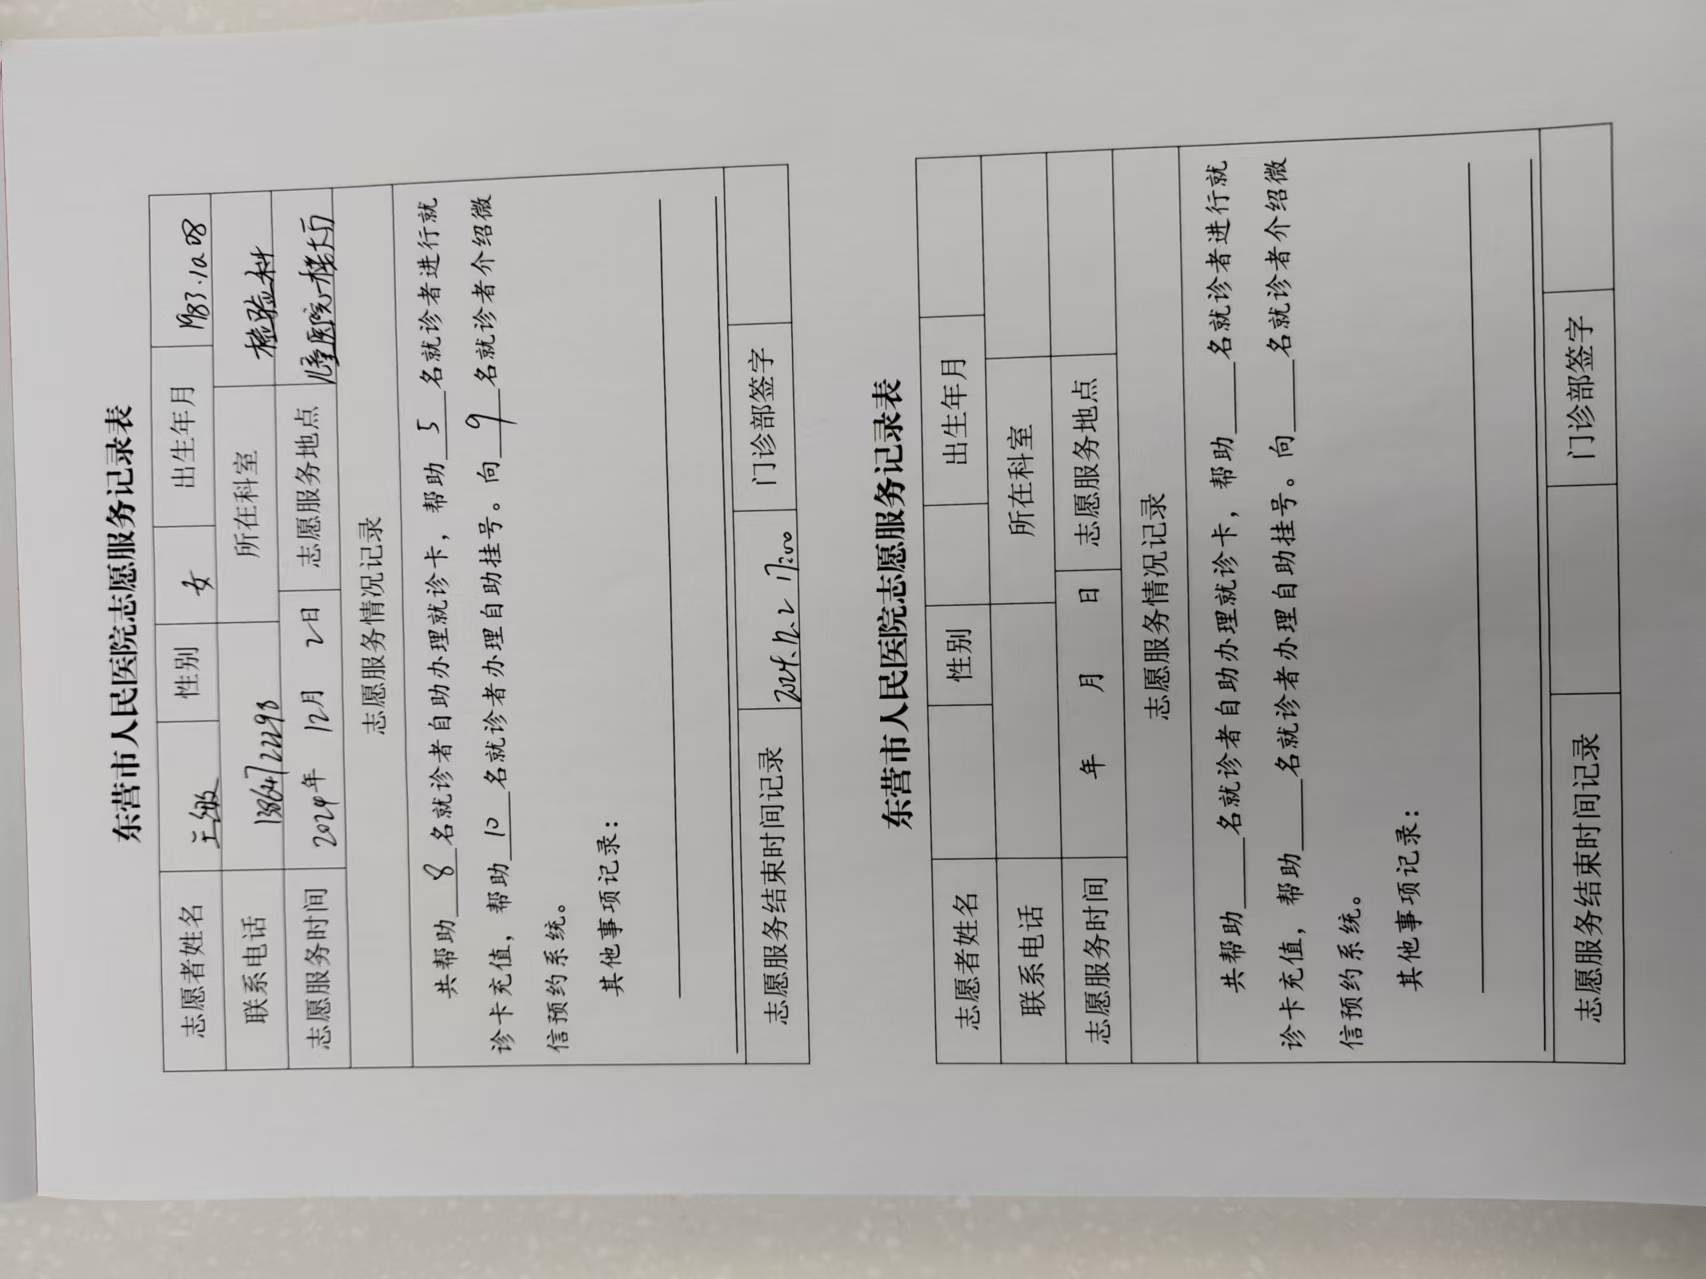 东营市人民医院志愿服务记录表
志愿者姓名 王敏 性别 女 出生年月 1983.10.08
联系电话 13864722293 所在科室 检验科
志愿服务时间 2024年 12月 2日 志愿服务地点 儿童医院一楼大厅
志愿服务情况记录
共帮助8名就诊者自助办理就诊卡，帮助5名就诊者进行就
诊卡充值，帮助10名就诊者办理自助挂号。向9名就诊者介绍微
信预约系统。
其他事项记录：
志愿服务结束时间记录 2024.12.2 17:00 门诊部签字
东营市人民医院志愿服务记录表
志愿者姓名 性别 出生年月
联系电话 所在科室
志愿服务时间 年 月 日 志愿服务地点
志愿服务情况记录
共帮助____名就诊者自助办理就诊卡，帮助____名就诊者进行就
诊卡充值，帮助____名就诊者办理自助挂号。向____名就诊者介绍微
信预约系统。
其他事项记录：
志愿服务结束时间记录 门诊部签字